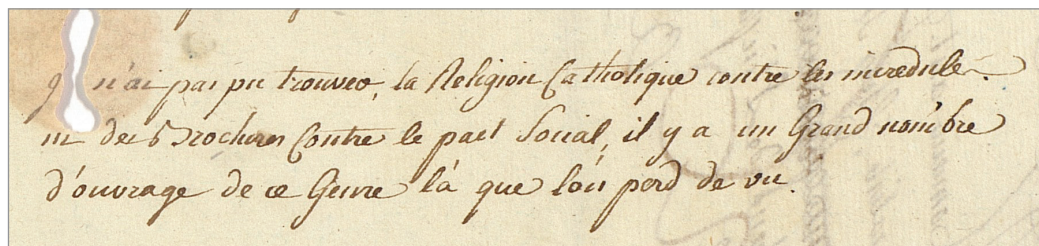 n'ai pas pu trouver, la Religion Catholique contre les incredule.
ni des Brochures Contre le pact Social, il y a un Grand nombre
d'ouvrage de ce Genre là que l'on perd de vu.